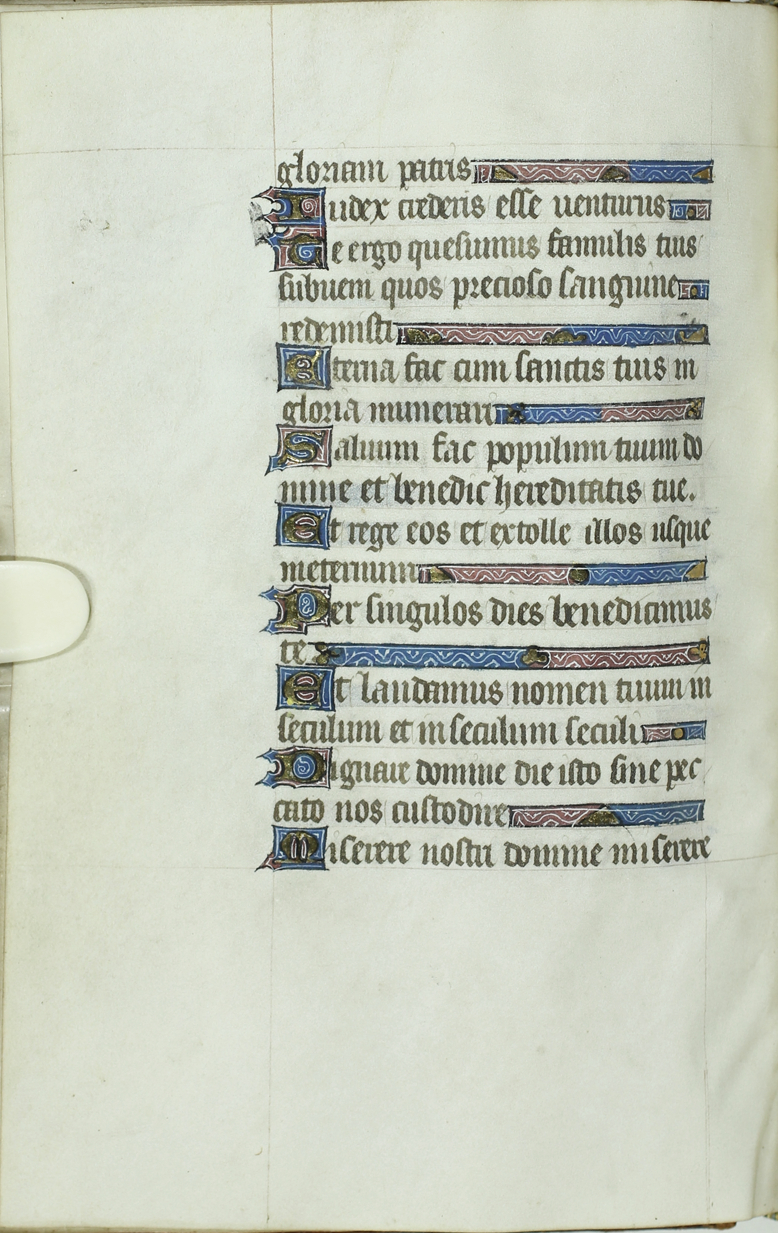 gloriam patris
Iudex crederis esse uenturus
Te ergo quesumus famulis tuis
subueni quos precioso sanguine
redemisti
Eterna fac cum sanctis tuis in
gloria munerari
Saluum fac populum tuum do
mine et benedic hereditatis tue.
Et rege eos et extolle illos usque
ineternum
Per singulos dies benedicimus
te
Et laudamus nomen tuum in
seculum et in seculum seculi
Dignare domine die isto sine pec
cato nos custodire
Miserere nostri domine miserere